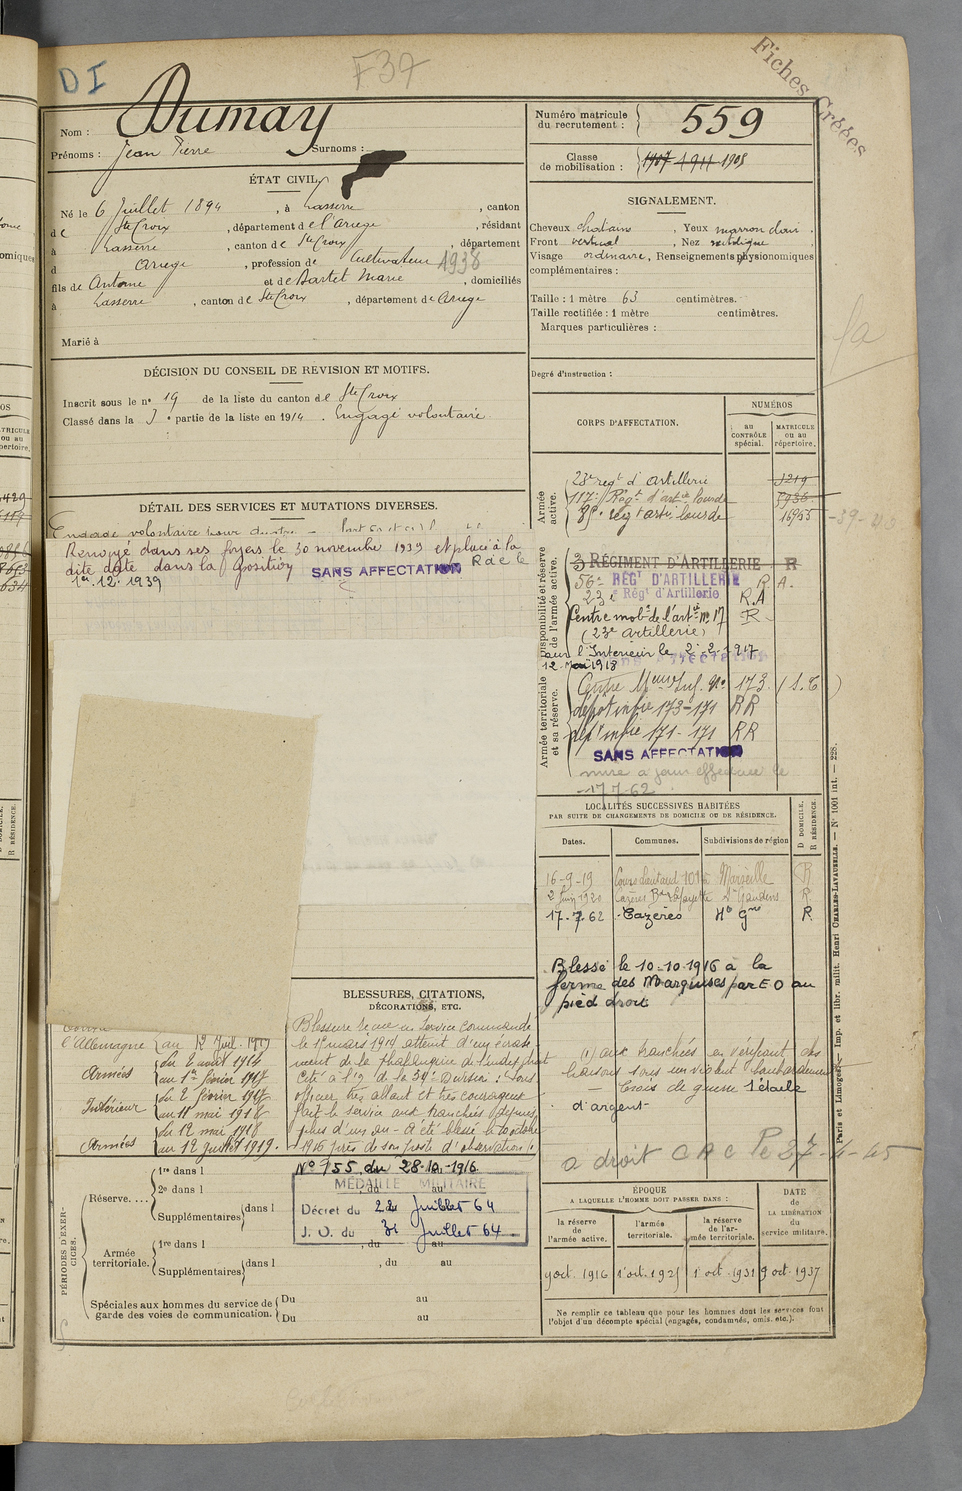 DI
F37
Fiches Créées
Nom : Dumay
Prénoms : Jean Pierre Surnoms :
Numéro matricule du recrutement : 559
Classe de mobilisation : 1907 1911 1908
ÉTAT CIVIL.
Né le 6 Juillet 1894, à Lasserre, canton
de Ste Croix, département de l'Ariège, résidant
à Lasserre, canton de Ste Croix, département
d Ariège, profession de Cultivateur 1938
fils de Antoine et de Bartet Marie, domiciliés
à Lasserre, canton de Ste Croix, département de Ariège
Marié à
SIGNALEMENT.
Cheveux châtains, Yeux marron clair.
Front vertical, Nez rectiligne
Visage ordinaire, Renseignements physionomiques
complémentaires :
Taille : 1 mètre 63 centimètres.
Taille rectifiée : 1 mètre centimètres.
Marques particulières :
Degré d'instruction :
DÉCISION DU CONSEIL DE REVISION ET MOTIFS.
Inscrit sous le n° 19 de la liste du canton de Ste Croix
Classé dans la 3e partie de la liste en 1914. Engagé volontaire
DÉTAIL DES SERVICES ET MUTATIONS DIVERSES.
Engagé volontaire pour
Renvoyé dans ses foyers le 30 novembre 1939 et placé à la
dite date dans la position SANS AFFECTATION R de le
1er. 12. 1939
CORPS D'AFFECTATION.
NUMÉROS
au CONTRÔLE spécial.
MATRICULE ou au répertoire.
Armée active.
23e régt d'artillerie 1219
117e Régt d'artie lourde 5936
85e rég artie lourde 16955
Disponibilité et réserve de l'armée active.
3 RÉGIMENT D'ARTILLERIE R
56e RÉGT D'ARTILLERIE R A.
23e Régt d'Artillerie R.A
Centre mobre de l'artie n° 17 R
(23e Artillerie)
aux
l'Intérieur le 2-2-1917
12 Mai 1918
Armée territoriale et sa réserve.
Centre Mours Inf. No 173 (S.C)
dépôt infie 173-171 RR
dépt infie 171-171 RR
SANS AFFECTATION
mise à jour effectuée le
17 7 62
LOCALITÉS SUCCESSIVES HABITÉES
PAR SUITE DE CHANGEMENTS DE DOMICILE OU DE RÉSIDENCE.
Dates. Communes. Subdivisions de région
D DOMICILE. R RÉSIDENCE.
16-9-19 Cours Lieutaud 101 Marseille R
2 Juin 1920 Cazères Bd Lafayette St Gaudens R
17-7.62 Cazères Hte Gne R
Blessé le 10-10-1916 à la
ferme des Marquises par E O au
pied droit
BLESSURES, CITATIONS,
DÉCORATIONS, ETC.
Blessure reçue en service commandé
le 1er mars 1914 atteint d'un écrase-
ment de la phalangine de l'index droit
Cité à l'O de la 34e Division : Sous
officier très allant et très courageux
fait le service aux tranchées depuis
plus d'un an - A été blessé le 10 octobre
1916 près de son poste d'observation (1)
No 155 du 28.10.1916
(1) aux tranchées en vérifiant des
liaisons sous un violent bombardement
— Croix de guerre 1 étoile
d'argent
l'Allemagne au 12 Juil. 1919
Armées du 2 août 1914
au 1er février 1917
Intérieur du 2 février 1917
au 11 mai 1918
Armées du 12 mai 1918
au 12 juillet 1919.
a droit C A C le 27-4-45
MÉDAILLE MILITAIRE
Décret du 22 Juillet 64
J. O. du 31 Juillet 64
PÉRIODES D'EXERCICES.
Réserve.... 1re dans l
2e dans l , du au
Supplémentaires dans l
Armée territoriale. 1re dans l , du au
Supplémentaires dans l , du au
Spéciales aux hommes du service de garde des voies de communication. Du au
Du au
ÉPOQUE
A LAQUELLE L'HOMME DOIT PASSER DANS :
la réserve de l'armée active.
l'armée territoriale.
la réserve de l'armée territoriale.
DATE de LA LIBÉRATION du service militaire.
9 oct. 1916 1er oct. 1925 1er oct. 1931 9 oct. 1937
Ne remplir ce tableau que pour les hommes dont les services font
l'objet d'un décompte spécial (engagés, condamnés, omis, etc.).
Paris et Limoges. — Imp. et libr. milit. Henri CHARLES-LAVAUZELLE. — N° 1001 int. — 228.